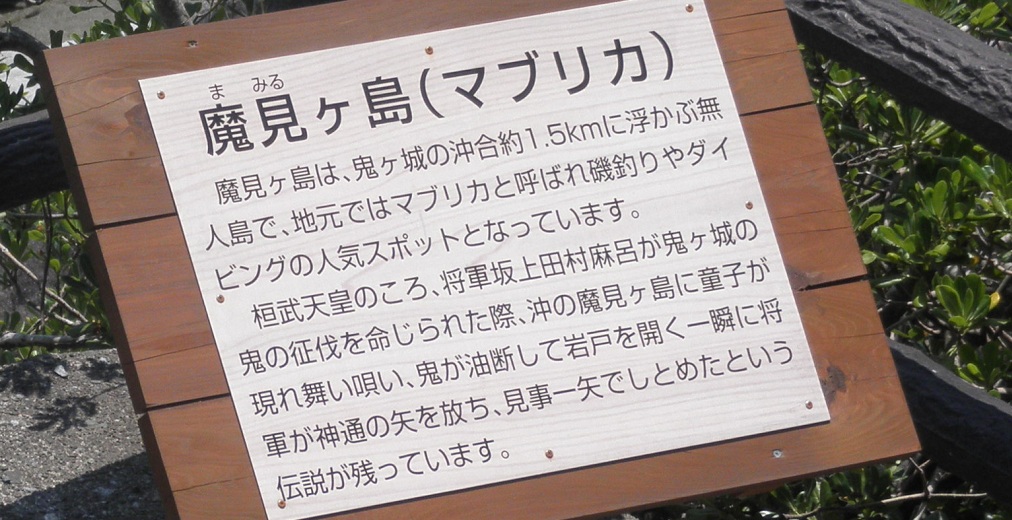 まみる
魔見ヶ島(マブリカ)
魔見ヶ島は、鬼ヶ城の沖合約1.5kmに浮かぶ無
人島で、地元ではマブリカと呼ばれ磯釣りやダイ
ビングの人気スポットとなっています。
桓武天皇のころ、将軍坂上田村麻呂が鬼ヶ城の
鬼の征伐を命じられた際、沖の魔見ヶ島に童子が
現れ舞い唄い、鬼が油断して岩戸を開く一瞬に将
軍が神通の矢を放ち、見事一矢でしとめたという
伝説が残っています。